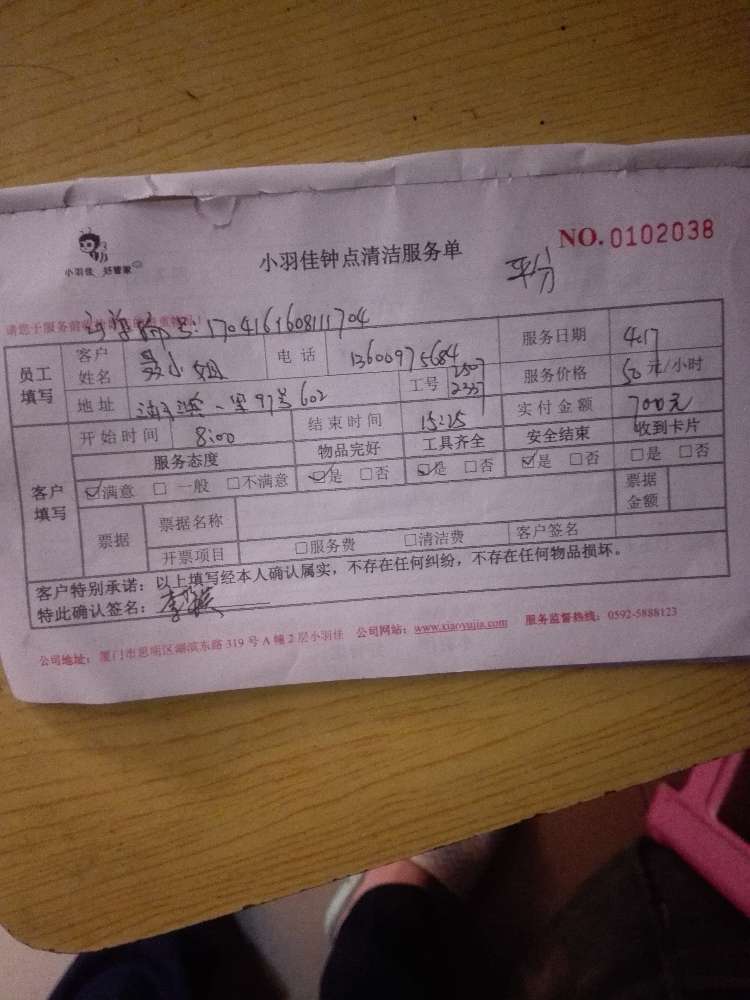 小羽佳 好管家
小羽佳钟点清洁服务单
NO. 0102038
平分
请您于服务前
号:170416160811704
员工填写 客户姓名 聂小姐 电话 13600975684 服务日期 4.17
地址 一里97号602 工号 2507 2337 服务价格 50元/小时
客户填写 开始时间 8:00 结束时间 15:25 实付金额 700元
服务态度 物品完好 工具齐全 安全结束 收到卡片
☑满意 □一般 □不满意 ☑是 □否 ☑是 □否 ☑是 □否 □是 □否
票据 票据名称 票据金额
开票项目 □服务费 □清洁费 客户签名
客户特别承诺:以上填写经本人确认属实,不存在任何纠纷,不存在任何物品损坏。
特此确认签名:李
公司地址:厦门市思明区湖滨东路319号A幢2层小羽佳 公司网站:www.xiaoyujia.com 服务监督热线:0592-5888123